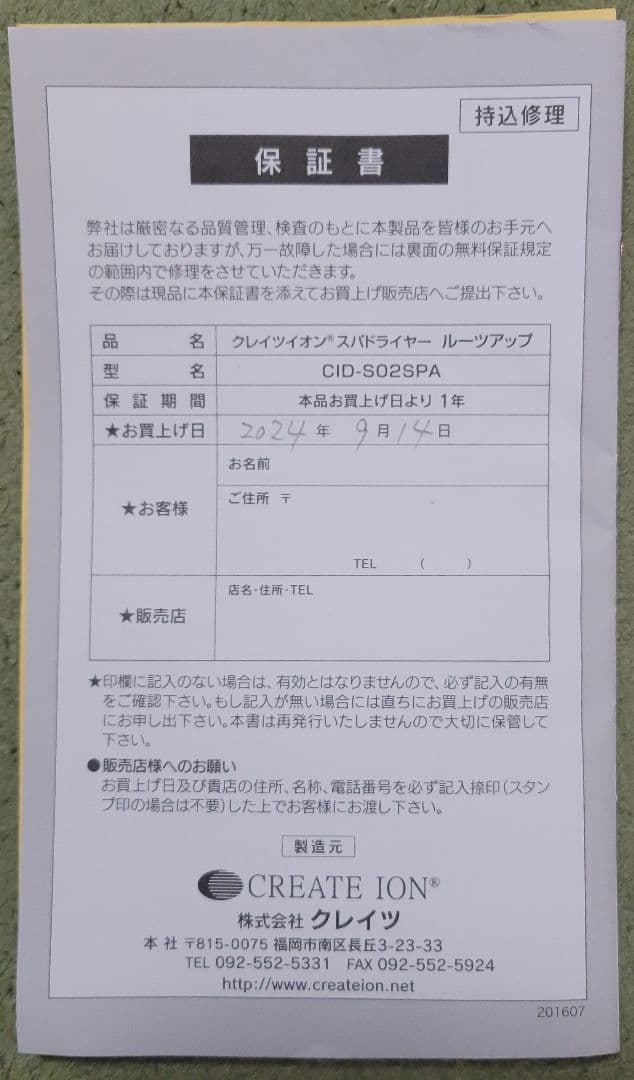 持込修理
保証書
弊社は厳密なる品質管理、検査のもとに本製品を皆様のお手元へ
お届けしておりますが、万一故障した場合には裏面の無料保証規定
の範囲内で修理をさせていただきます。
その際は現品に本保証書を添えてお買上げ販売店へご提出下さい。
品名 クレイツイオン®スパドライヤー ルーツアップ
型名 CID-S02SPA
保証期間 本品お買上げ日より 1年
★お買上げ日 2024年 9月14日
★お客様
お名前
ご住所 〒
TEL ( )
★販売店
店名・住所・TEL
★印欄に記入のない場合は、有効とはなりませんので、必ず記入の有無
をご確認下さい。もし記入が無い場合には直ちにお買上げの販売店
にお申し出下さい。本書は再発行いたしませんので大切に保管して
下さい。
●販売店様へのお願い
お買上げ日及び貴店の住所、名称、電話番号を必ず記入捺印(スタン
プ印の場合は不要)した上でお客様にお渡し下さい。
製造元
CREATE ION®
株式会社 クレイツ
本社 〒815-0075 福岡市南区長丘3-23-33
TEL 092-552-5331 FAX 092-552-5924
http://www.createion.net
201607